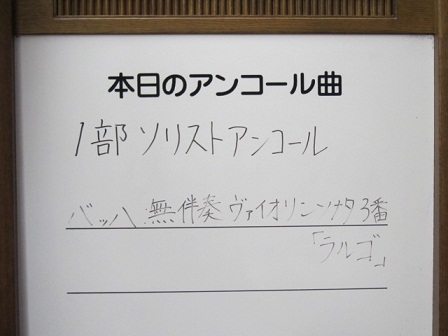 本日のアンコール曲
1部 ソリストアンコール
バッハ 無伴奏 ヴァイオリンソナタ3番
「ラルゴ」